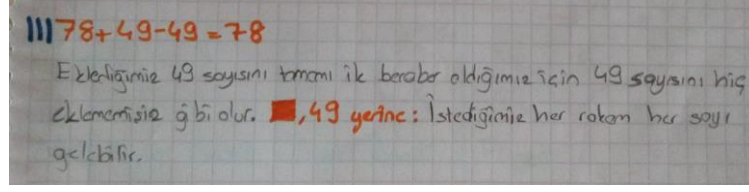 III 78+49-49=78
Eklediğimiz 49 sayısını tamamı ile beraber aldığımız için 49 sayısını hiç
eklememişiz gibi olur. , 49 yerine: İstediğimiz her rakam her sayı
gelebilir.